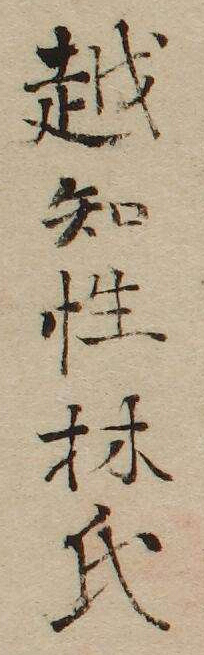 越知性林氏